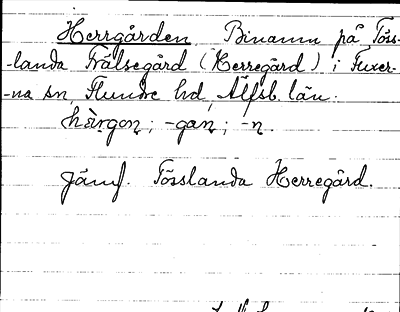 Herrgården, Binamn på Töss-
-landa Frälsegård (Herregård) i Fuxer-
-na sn, Flundre hd, Älfsb. län:
hàrgon; -gan; -n.
Jämf. Tösslanda Herregård.